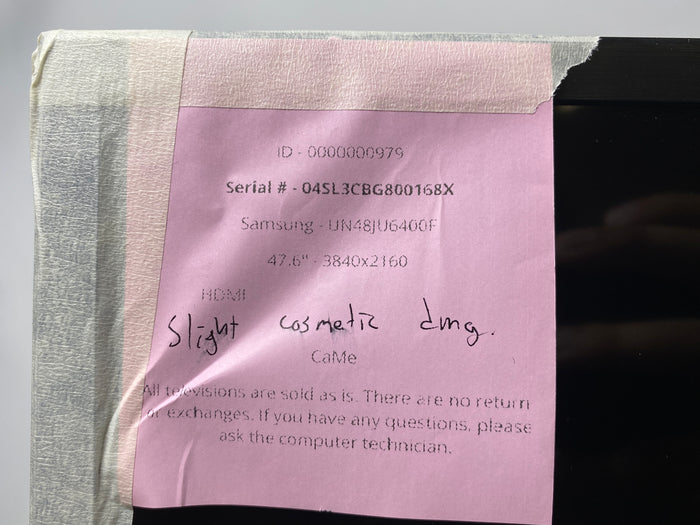 ID - 0000000979
Serial # - 04SL3CBG800168X
Samsung - UN48JU6400F
47.6" - 3840x2160
HDMI
Slight cosmetic dmg.
CaMe
All televisions are sold as is. There are no return
or exchanges. If you have any questions, please
ask the computer technician.